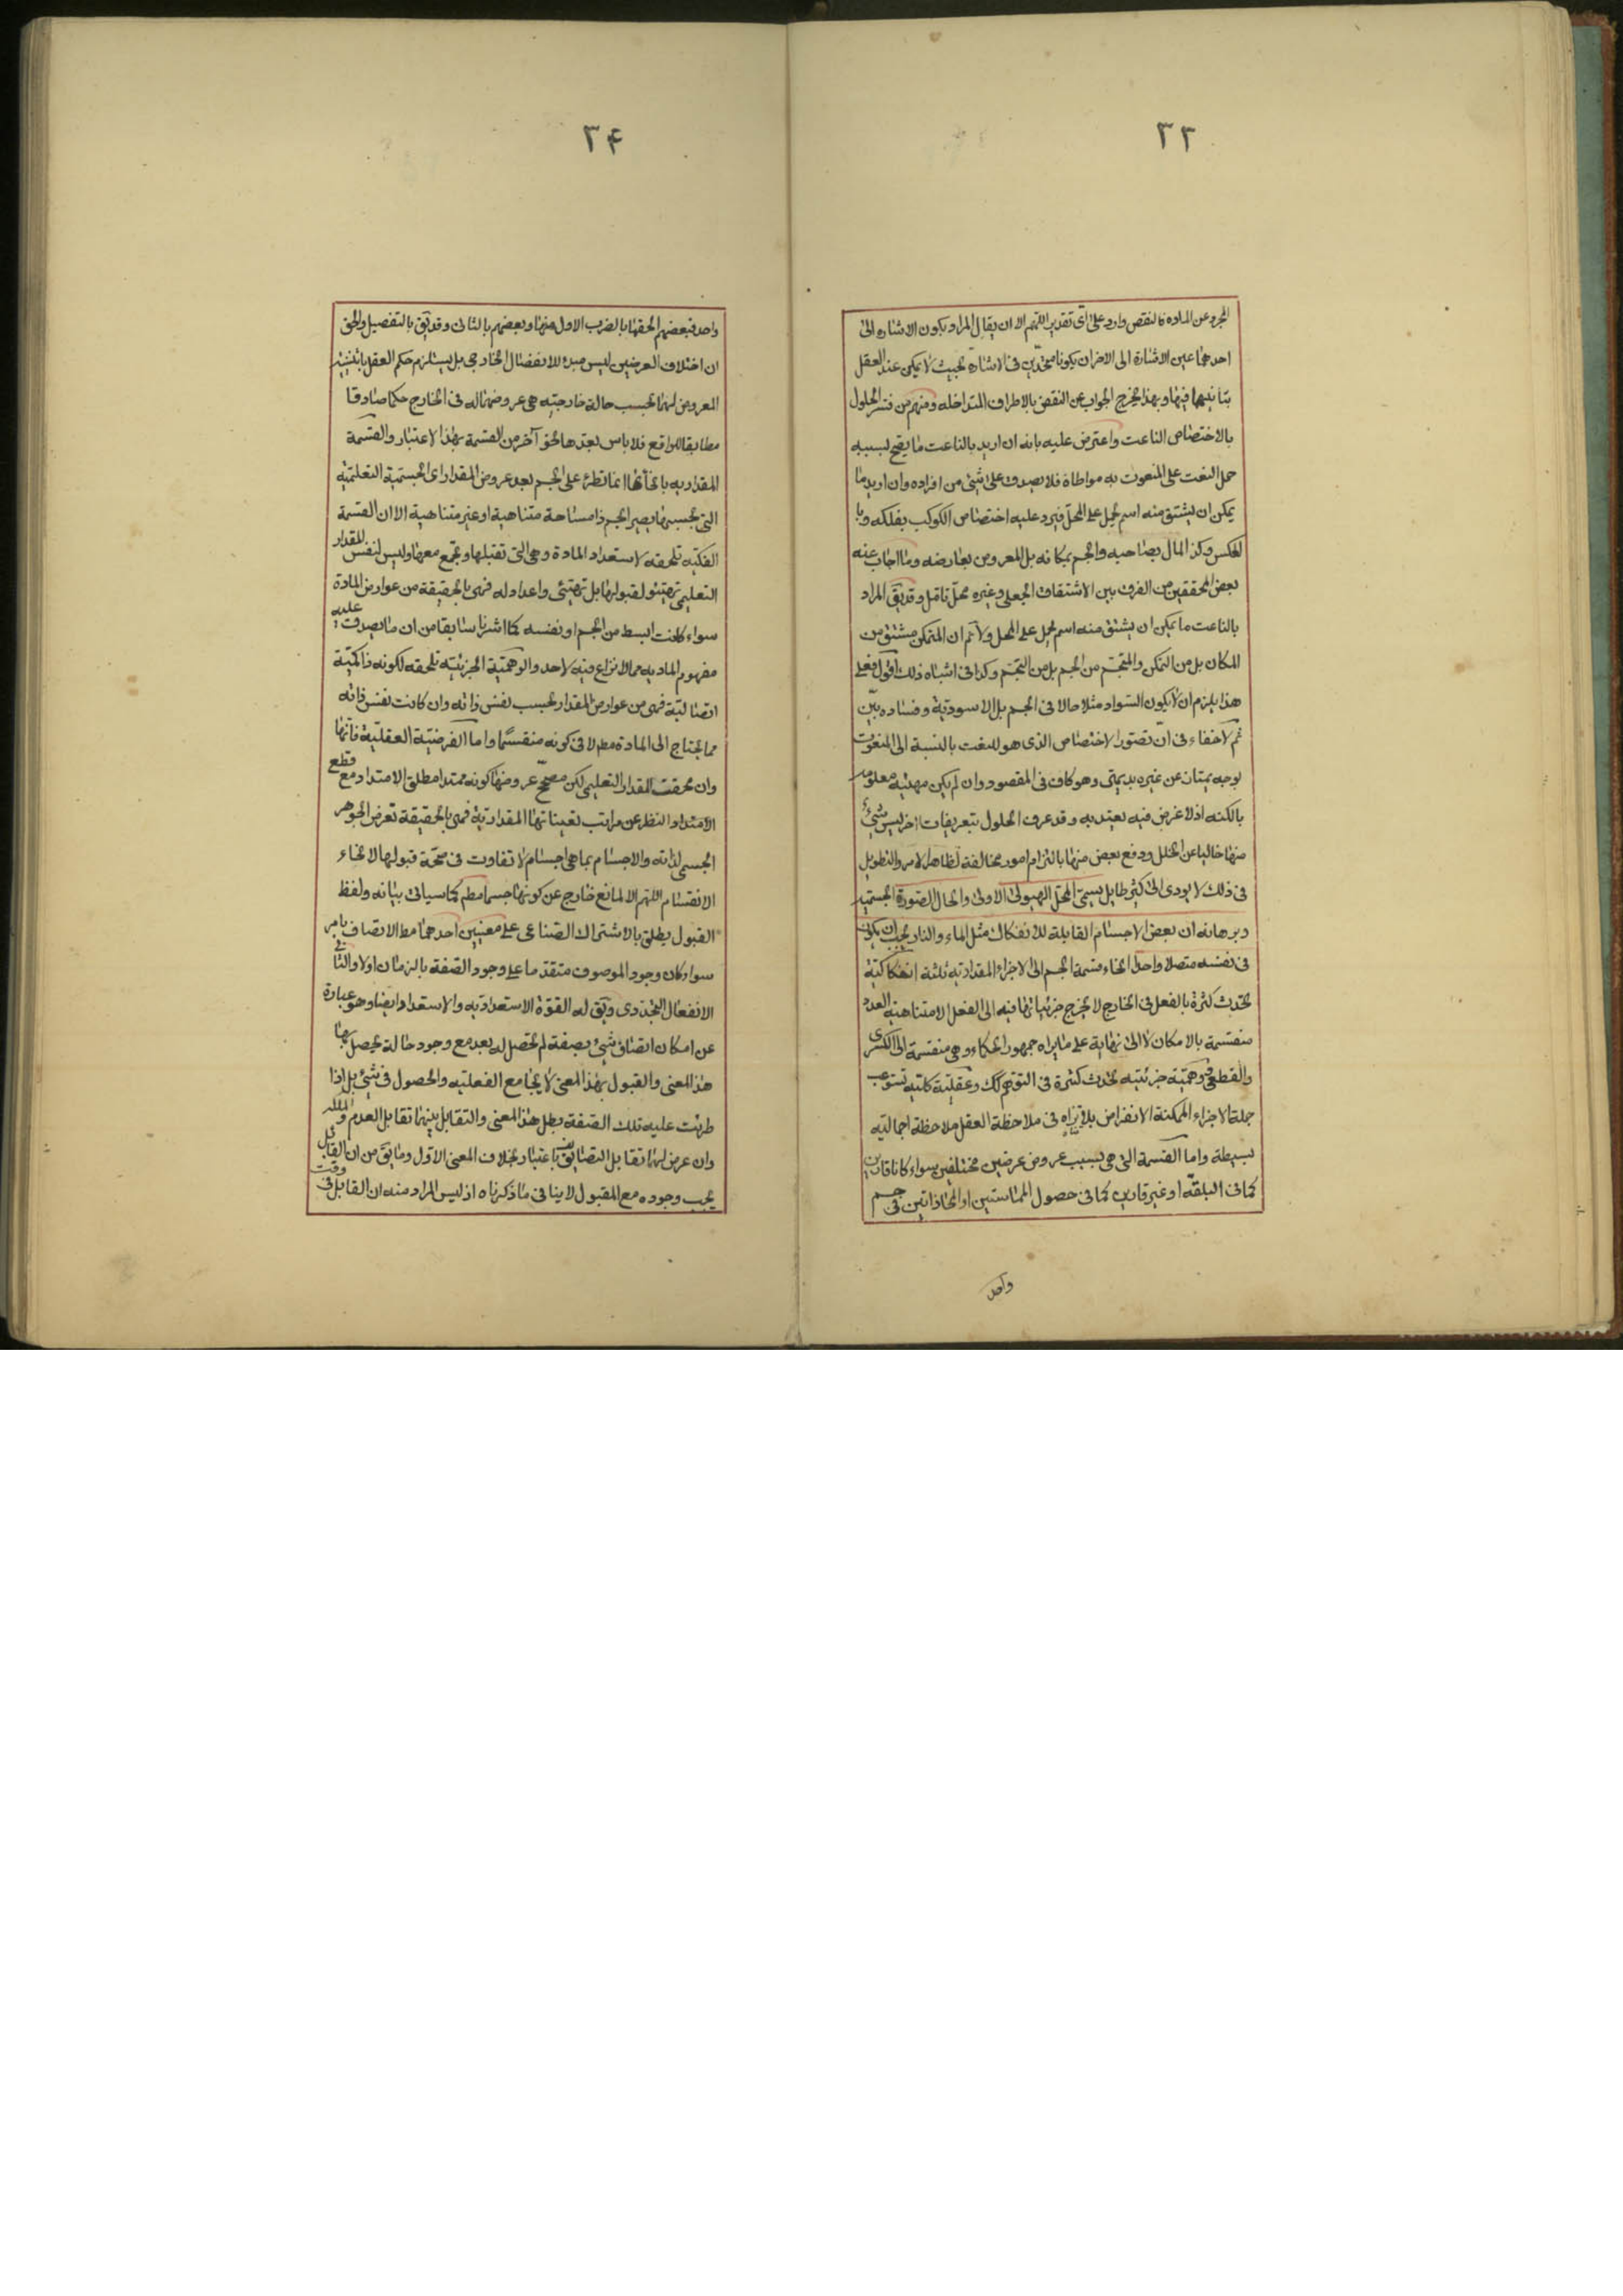 ٣٣
المجرد عن الماده فالنقص وارد على اى تقدير اللهم الا ان يقال المراد بكون الاشاره الى
احدهما عين الاشارة الى الاخر ان يكونا متحدين فى الاشارة بحيث لا يمكن عند العقل
تباينهما فيها وبهذا يخرج الجواب عن النقض بالاطراف المتداخله ومنهم من فسر الحلول
بالاختصاص الناعت واعترض عليه بانه ان اريد بالناعت ما يصح بسببه
حمل النعت على المنعوت به مواطاة فلا يصدق على شئ من افراده وان اريد ما
يمكن ان يشتق منه اسم يحمل على المحل فيرد عليه اختصاص الكوكب بفلكه وبا
لعكس وكذ المال بصاحبه والجسم بمكانه بل المعروض بعارضه وما اجاب عنه
بعض المحققين من الفرق بين الاشتقاق الجعلى وغيره محل تامل وقد يق المراد
بالناعت ما يمكن ان يشتق منه اسم يحمل على المحل ولا نم ان المتمكن مشتق من
المكان بل من التمكن والمتجسم من الجسم بل من التجسم وكذا فى اشباه ذلك اقول فعلى
هذا يلزم ان لا يكون السواد مثلا حالا فى الجسم بل الاسودية وفساده بيّن
ثم لا خفاء فى ان تصور الاختصاص الذى هو للنعت بالنسبة الى المنعوت
بوجه يمتاز عن غيره بديهى وهو كاف فى المقصود وان لم يكن مهيته معلومه
بالكنه اذ لا غرض فيه يعتد به وقد عرف الحلول بتعريفات اخر ليس شئ
منها خاليا عن الخلل ودفع بعض منها بالتزام امور مخالفة لظاهر الامر والتطويل
فى ذلك لا يودى الى كثير طايل يسمى المحل الهيولى الاولى والحال الصورة الجسميه
وبرهانه ان بعض الاجسام القابلة للانفكاك مثل الماء والنار يجب ان يكون
فى نفسه متصلا واحدا انحاء قسمة الجسم الى الاجزاء المقدارية ثلثة انفكاكية
تحدث كثرة بالفعل فى الخارج لا يخرج جزئياتها فيه الى الفعل لا متناهية العدد
منقسمة بالامكان لا الى نهاية على ما يراه جمهور الحكماء وهى منقسمة الى الكسرى
والقطعى ووهمية جزئيه تحدث كثرة فى التوهم كك وعقلية كليه تستوعب
جملة الاجزاء الممكنة الانفراض فى ملاحظة العقل ملاحظة اجماليه
بسيطة واما القسمة التى هى بسبب عروض عرضين مختلفين سواء كانا قارين
كما فى البلقة او غير قارين كما فى حصول المماستين او المحاذاتين فى جسم
واحد
٣۴
واحد فبعضهم الحقها بالضرب الاول منها وبعضهم بالثانى وقد يق بالتفصيل والحق
ان اختلاف العرضين ليس مبدء للانفصال الخارجى بل يستلزم حكم العقل باثنينيه
المعروض لهما بحسب حالة خارجيه هى عروضهما له فى الخارج حكما صادقا
مطابقا للواقع فلا باس بعدها نحو آخر من القسمة بهذا الاعتبار والقسمة
المقداريه بانحائها انما تطرئ على الجسم بعد عروض المقدار اى الجسمية التعليمية
التى بحسبها يصير الجسم ذا مساحة متناهية او غير متناهية الا ان القسمة
الفكيه تلحقه لاستعداد المادة وهى التى تقبلها وتجتمع معها وليس لنفس المقدار
التعليمى تهيئو لقبولها بل تهيئى واعداد له فهى بالحقيقة من عوارض المادة
سواء كانت ابسط من الجسم او نفسه كما اشرنا سابقا من ان ما يصدق عليه
مفهوم الماديه مما لا نزاع فيه لاحد والوهمية الجزئيه تلحقه لكونه ذا كمية
اتصالية فهى من عوارض المقدار بحسب نفس ذاته وان كانت نفس ذاته
مما يحتاج الى المادة مط لا فى كونه منقسما واما الفرضية العقلية فانها
وان لحقت المقدار التعليمى لكن مصحح عروضها كونه ممتدا مطلق الامتداد مع قطع
الامتداد النظر عن مراتب تعيناتها المقدارية فهى بالحقيقة تعرض الجوهر
الجسمى لذاته والاجسام بما هى اجسام لا تفاوت فى صحة قبولها لانحاء
الانقسام اللهم الا لمانع خارج عن كونها جسما مط كما سياتى بيانه ولفظ
القبول يطلق بالاشتراك الصناعى على معنيين احدهما مط الاتصاف بامر
سواء كان وجود الموصوف متقدما على وجود الصفة بالزمان اولا والثانى
الانفعال التجددى ويق له القوة الاستعداديه والاستعداد ايضا وهو عبارة
عن امكان اتصاف شئ بصفة لم تحصل له بعد مع وجود حالة يحصل بها
هذا المعنى والقبول بهذا المعنى لا يجامع الفعليه والحصول فى شئ بل اذا
طرئت عليه تلك الصفة بطل هذا المعنى والتقابل بينهما تقابل العدم والملكه
وان عرض لهما تقابل التضايف باعتبار بخلاف المعنى الاول وما يق من ان القابل
يجب وجوده مع المقبول لا ينافى ما ذكرناه اذ ليس المراد منه ان القابل فى وقت